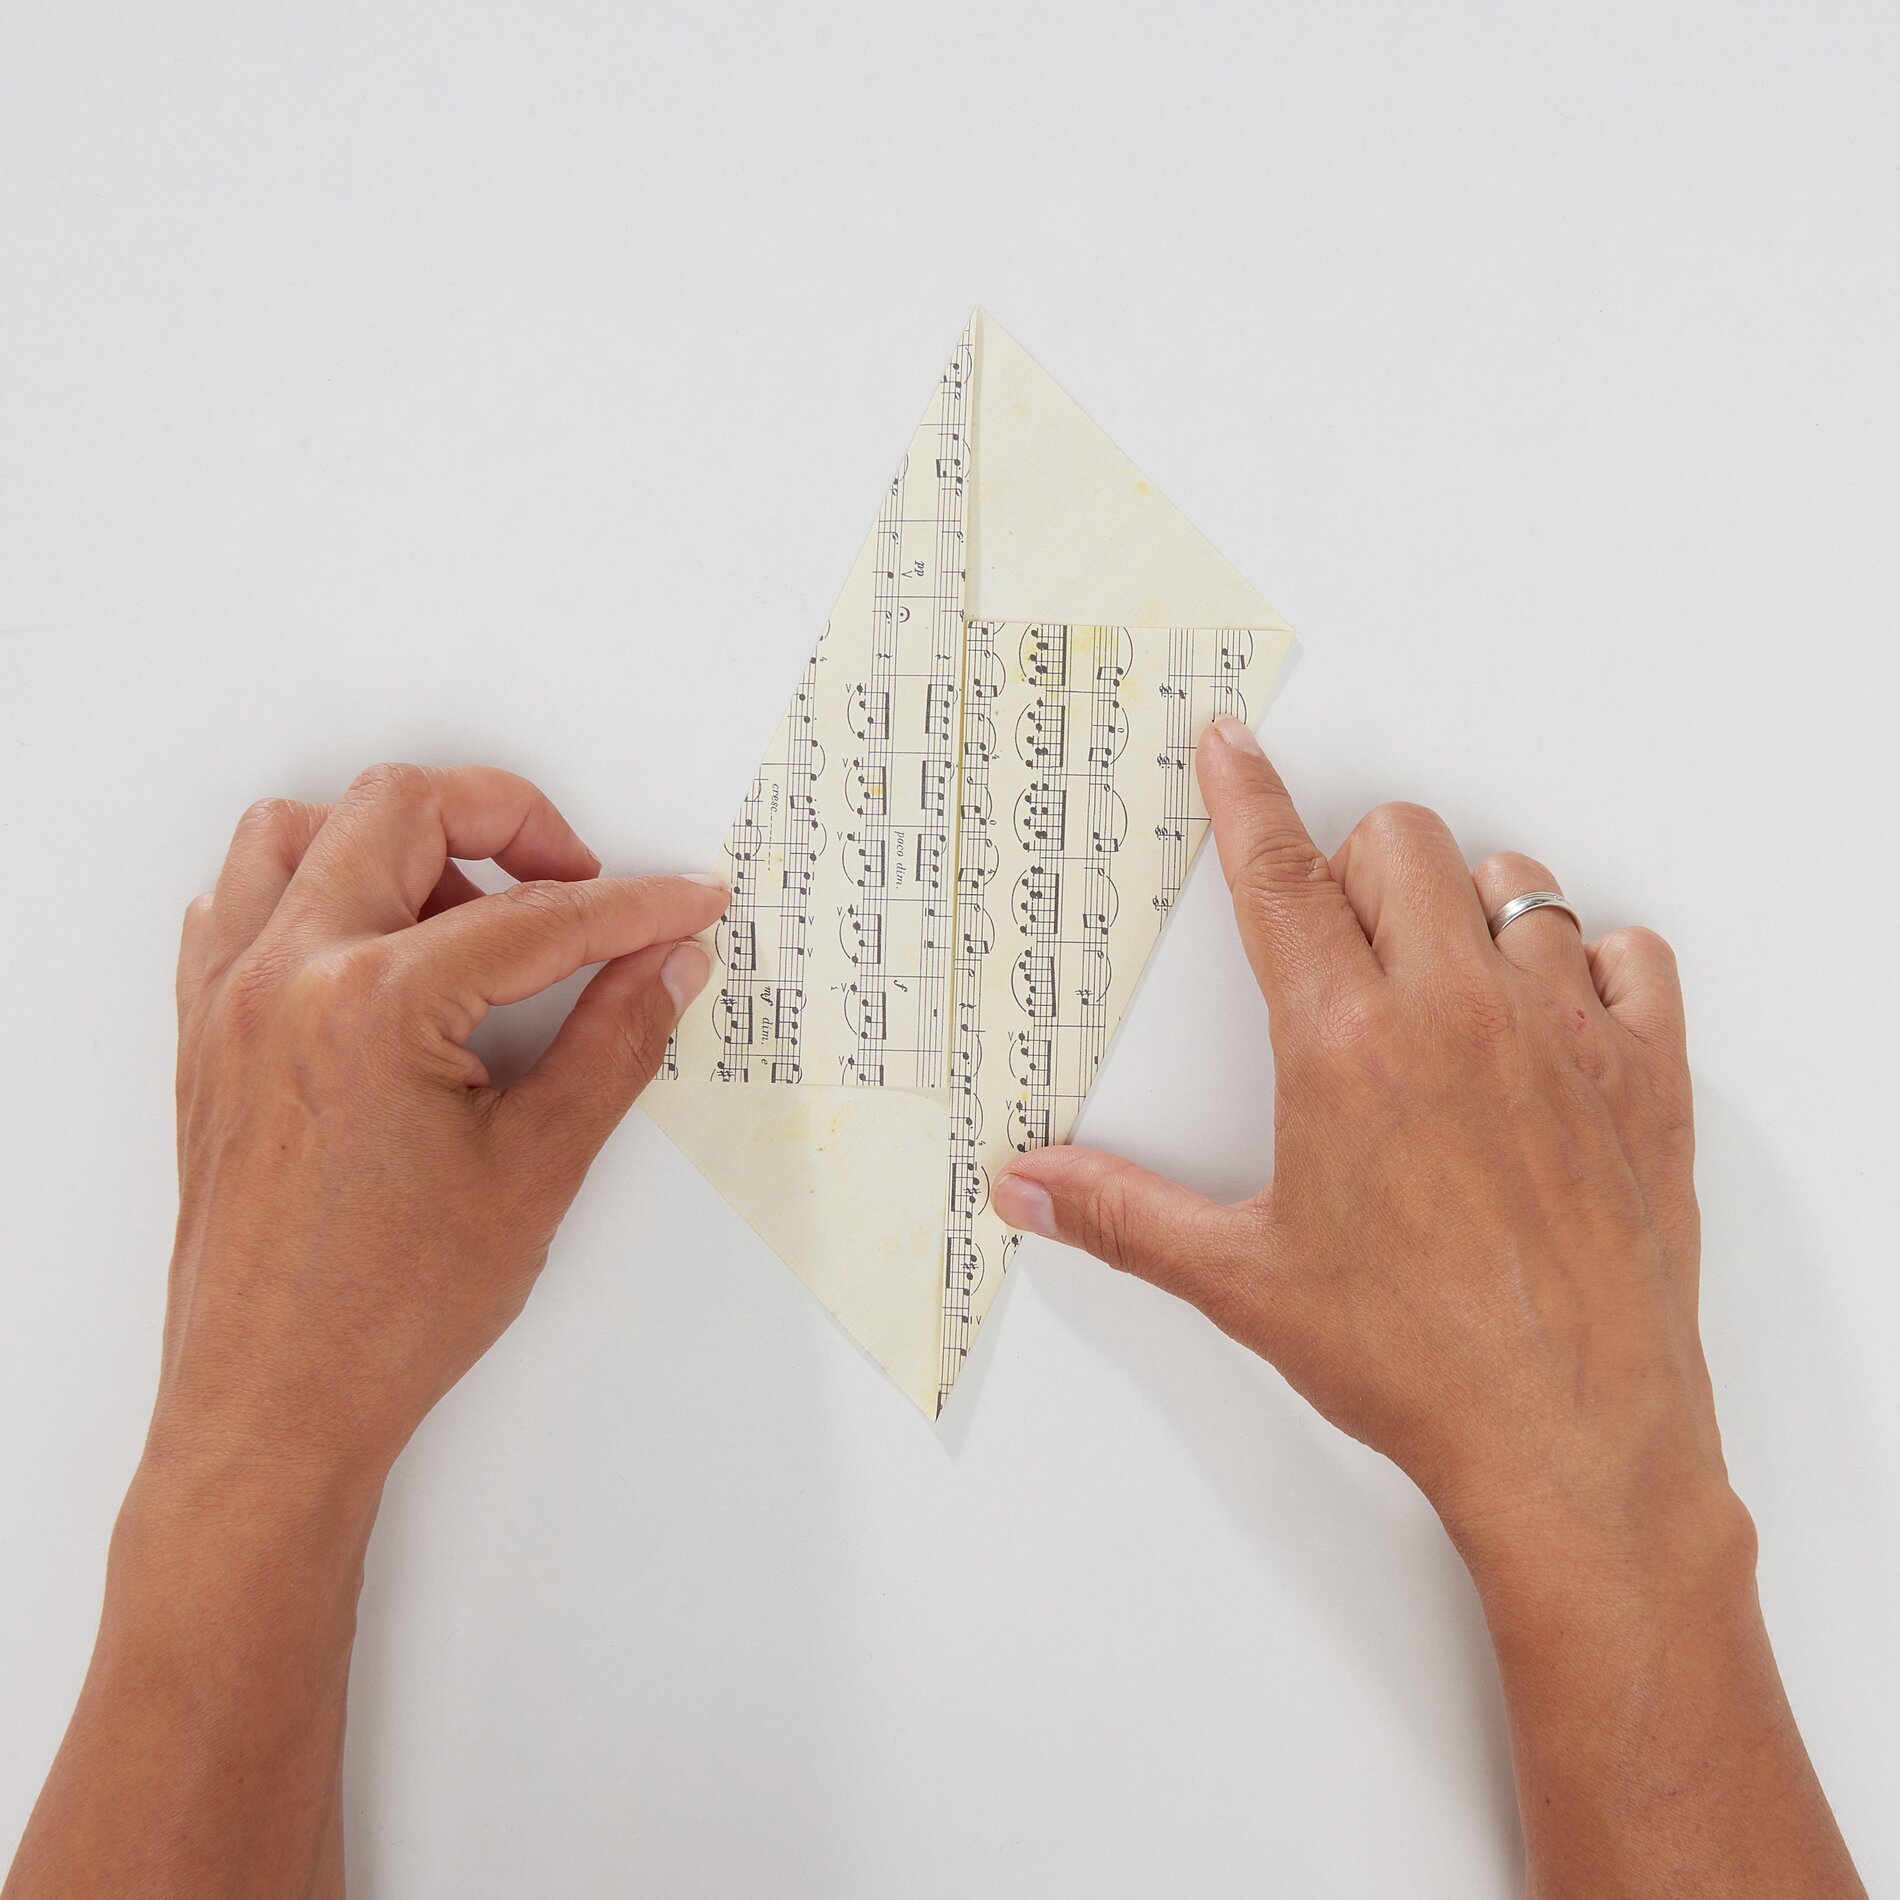 pp
cresc.
poco dim.
f
mf dim. e
IV